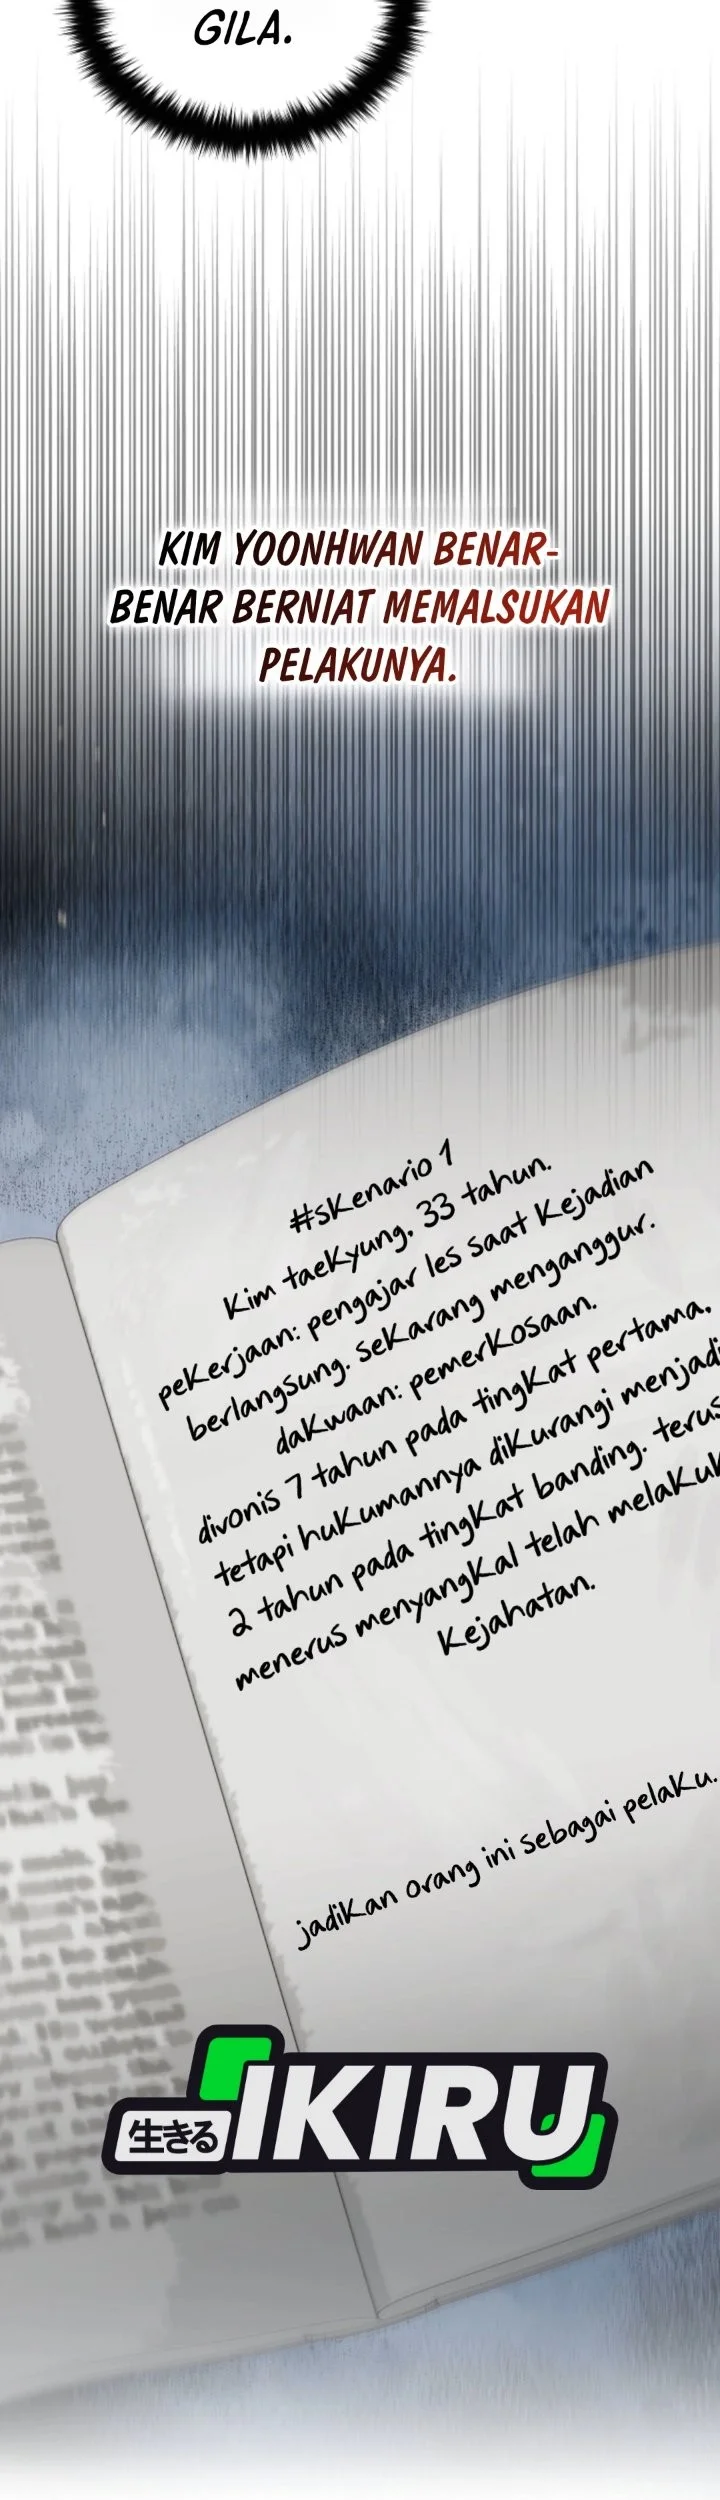 GILA.
KIM YOONHWAN BENAR-
BENAR BERNIAT MEMALSUKAN
PELAKUNYA.
#skenario 1
Kim taekyung, 33 tahun.
pekerjaan: pengajar les saat kejadian
berlangsung. sekarang menganggur.
dakwaan: pemerkosaan.
divonis 7 tahun pada tingkat pertama,
tetapi hukumannya dikurangi menjadi
2 tahun pada tingkat banding. terus
menerus menyangkal telah melakuk
kejahatan.
jadikan orang ini sebagai pelaku.
生きる IKIRU